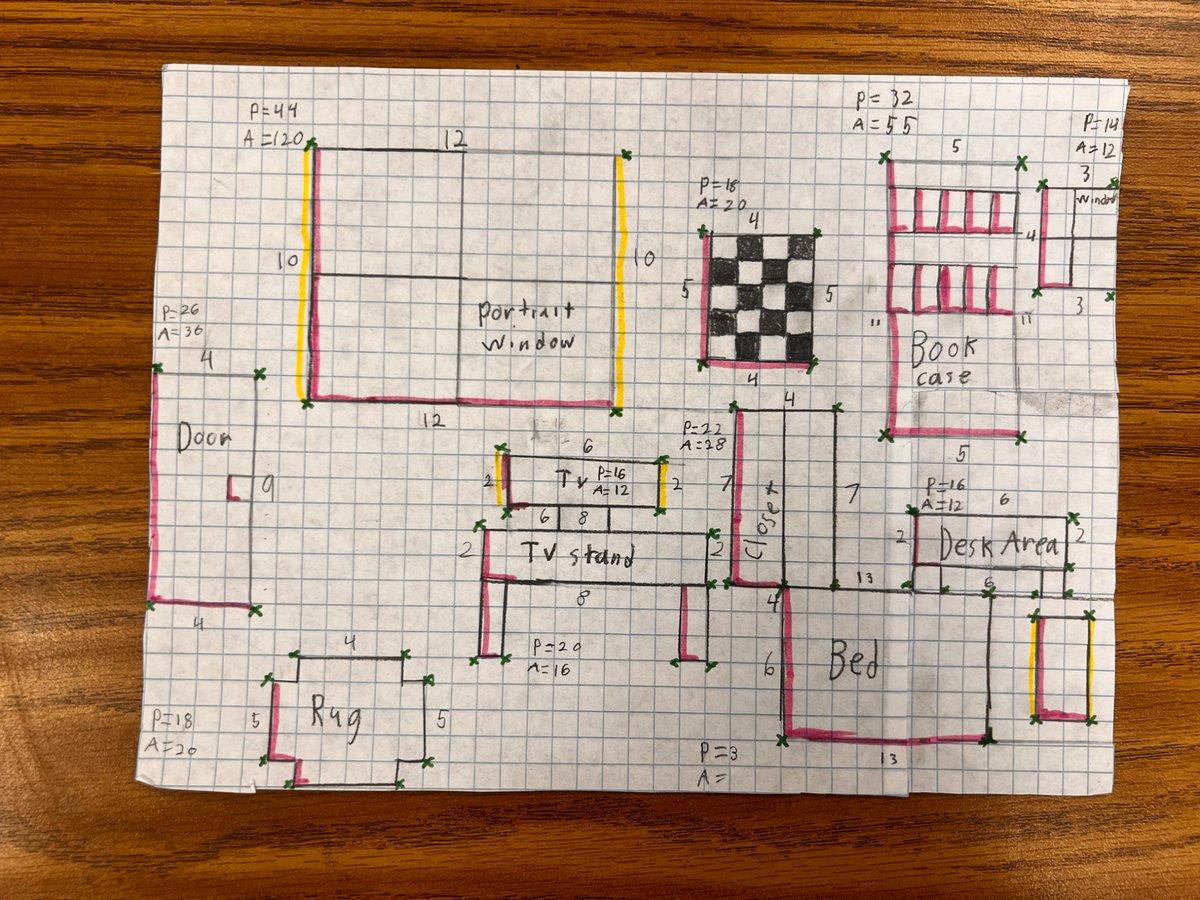 P=44
A=120
12
10
10
portrait
window
12
P=18
A=20
4
5
5
4
P=32
A=55
5
11
11
Book
case
5
P=14
A=12
3
window
4
3
P=26
A=36
4
Door
9
4
6
2
TV
P=16
A=12
2
6
8
2
TV stand
2
8
P=20
A=16
P=22
A=28
4
7
Closet
7
4
P=16
A=12
6
2
Desk Area
2
6
13
6
Bed
13
P=3
A=
4
5
Rug
5
P=18
A=20